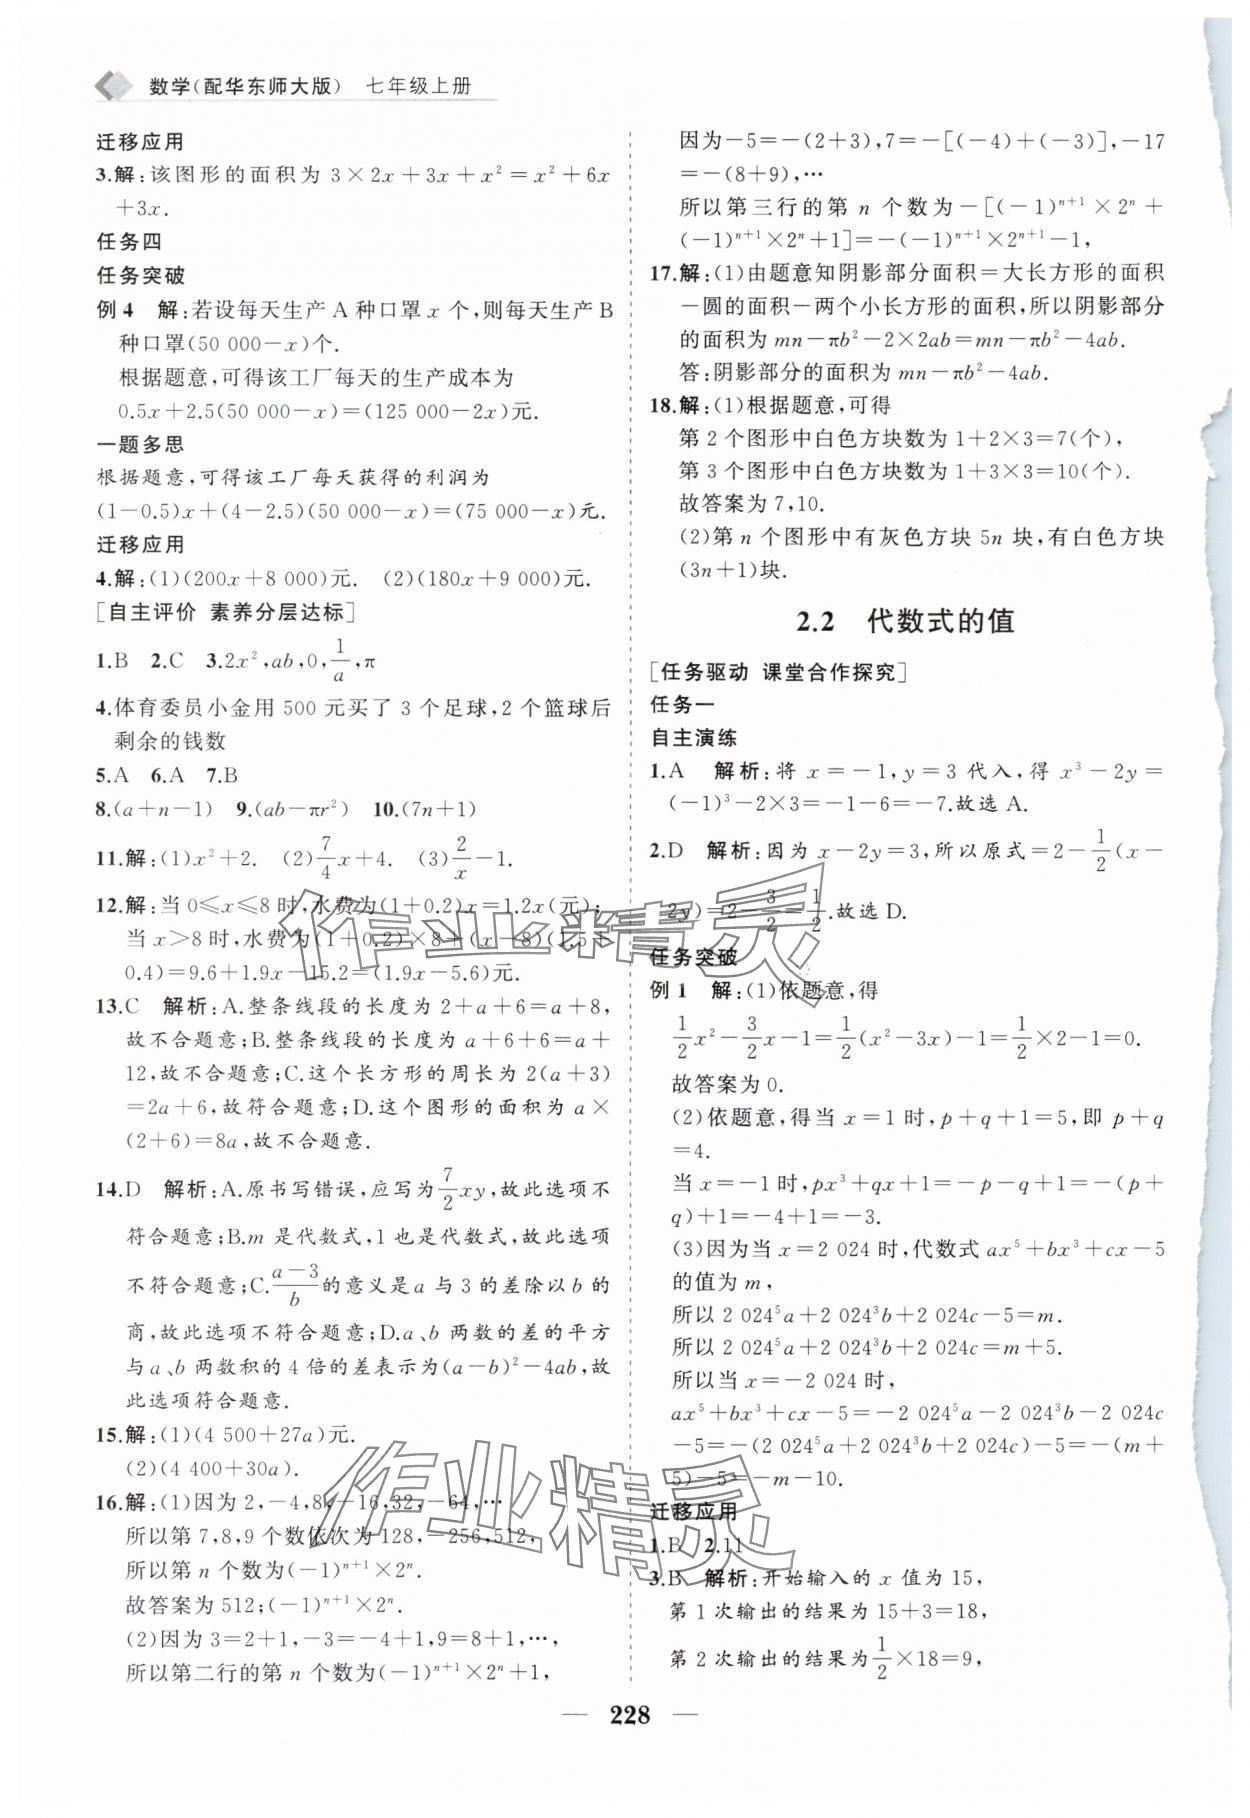 数学(配华东师大版) 七年级上册
迁移应用
3.解:该图形的面积为 3×2x+3x+x²=x²+6x
+3x.
任务四
任务突破
例 4 解:若设每天生产 A 种口罩 x 个,则每天生产 B
种口罩(50 000-x)个.
根据题意,可得该工厂每天的生产成本为
0.5x+2.5(50 000-x)=(125 000-2x)元.
一题多思
根据题意,可得该工厂每天获得的利润为
(1-0.5)x+(4-2.5)(50 000-x)=(75 000-x)元.
迁移应用
4.解:(1)(200x+8 000)元. (2)(180x+9 000)元.
[自主评价 素养分层达标]
1.B 2.C 3.2x²,ab,0,1/a,π
4.体育委员小金用 500 元买了 3 个足球,2 个篮球后
剩余的钱数
5.A 6.A 7.B
8.(a+n-1) 9.(ab-πr²) 10.(7n+1)
11.解:(1)x²+2. (2)7/4x+4. (3)2/x-1.
12.解:当 0≤x≤8 时,水费为(1+0.2)x=1.2x(元);
当 x>8 时,水费为(1+0.2)×8+(x-8)(1.5+
0.4)=9.6+1.9x-15.2=(1.9x-5.6)元.
13.C 解析:A.整条线段的长度为 2+a+6=a+8,
故不合题意;B.整条线段的长度为 a+6+6=a+
12,故不合题意;C.这个长方形的周长为 2(a+3)
=2a+6,故符合题意;D.这个图形的面积为 a×
(2+6)=8a,故不合题意.
14.D 解析:A.原书写错误,应写为7/2xy,故此选项不
符合题意;B.m 是代数式,1 也是代数式,故此选项
不符合题意;C.(a-3)/b的意义是 a 与 3 的差除以 b 的
商,故此选项不符合题意;D.a、b 两数的差的平方
与 a、b 两数积的 4 倍的差表示为(a-b)²-4ab,故
此选项符合题意.
15.解:(1)(4 500+27a)元.
(2)(4 400+30a).
16.解:(1)因为 2,-4,8,-16,32,-64,…
所以第 7,8,9 个数依次为 128,-256,512,
所以第 n 个数为(-1)ⁿ⁺¹×2ⁿ.
故答案为 512;(-1)ⁿ⁺¹×2ⁿ.
(2)因为 3=2+1,-3=-4+1,9=8+1,…,
所以第二行的第 n 个数为(-1)ⁿ⁺¹×2ⁿ+1,
因为-5=-(2+3),7=-[(-4)+(-3)],-17
=-(8+9),…
所以第三行的第 n 个数为-[(-1)ⁿ⁺¹×2ⁿ+
(-1)ⁿ⁺¹×2ⁿ+1]=-(-1)ⁿ⁺¹×2ⁿ⁺¹-1,
17.解:(1)由题意知阴影部分面积=大长方形的面积
-圆的面积-两个小长方形的面积,所以阴影部分
的面积为 mn-πb²-2×2ab=mn-πb²-4ab.
答:阴影部分的面积为 mn-πb²-4ab.
18.解:(1)根据题意,可得
第 2 个图形中白色方块数为 1+2×3=7(个),
第 3 个图形中白色方块数为 1+3×3=10(个).
故答案为 7,10.
(2)第 n 个图形中有灰色方块 5n 块,有白色方块
(3n+1)块.
2.2 代数式的值
[任务驱动 课堂合作探究]
任务一
自主演练
1.A 解析:将 x=-1,y=3 代入,得 x³-2y=
(-1)³-2×3=-1-6=-7.故选 A.
2.D 解析:因为 x-2y=3,所以原式=2-1/2(x-
2y)=2-3/2=1/2.故选 D.
任务突破
例 1 解:(1)依题意,得
1/2x²-3/2x-1=1/2(x²-3x)-1=1/2×2-1=0.
故答案为 0.
(2)依题意,得当 x=1 时,p+q+1=5,即 p+q
=4.
当 x=-1 时,px³+qx+1=-p-q+1=-(p+
q)+1=-4+1=-3.
(3)因为当 x=2 024 时,代数式 ax⁵+bx³+cx-5
的值为 m,
所以 2 024⁵a+2 024³b+2 024c-5=m.
所以 2 024⁵a+2 024³b+2 024c=m+5.
所以当 x=-2 024 时,
ax⁵+bx³+cx-5=-2 024⁵a-2 024³b-2 024c
-5=-(2 024⁵a+2 024³b+2 024c)-5=-(m+
5)-5=-m-10.
迁移应用
1.B 2.11
3.B 解析:开始输入的 x 值为 15,
第 1 次输出的结果为 15+3=18,
第 2 次输出的结果为1/2×18=9,
— 228 —
作业精灵
作业精灵